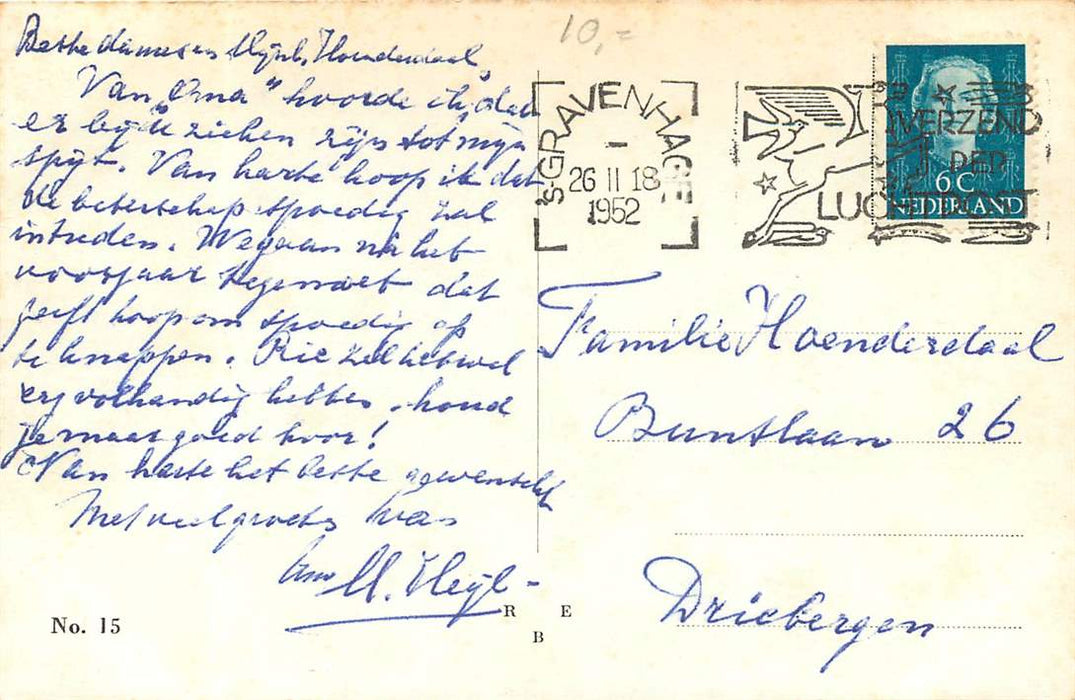 10,=
Beste dames en Mijnh. Hoenderdaal,
Van "Oma" hoorde ik, dat
er bij U zieken zijn tot mijn
spijt. Van harte hoop ik dat
de beterschap spoedig zal
intreden. We gaan nu het
voorjaar tegemoet dat
geeft hoop om spoedig op
te knappen. Rie zal het wel
erg volhandig hebben, houd
je maar goed hoor!
Van harte het beste gewenscht
Met veel groeten van
M. Heyl-
No. 15
R E
B
'S GRAVENHAGE
26 II 18
1952
VERZEND
PER
LUCHTPOST
6 C
NEDERLAND
Familie Hoenderdaal
Buntlaan 26
Driebergen